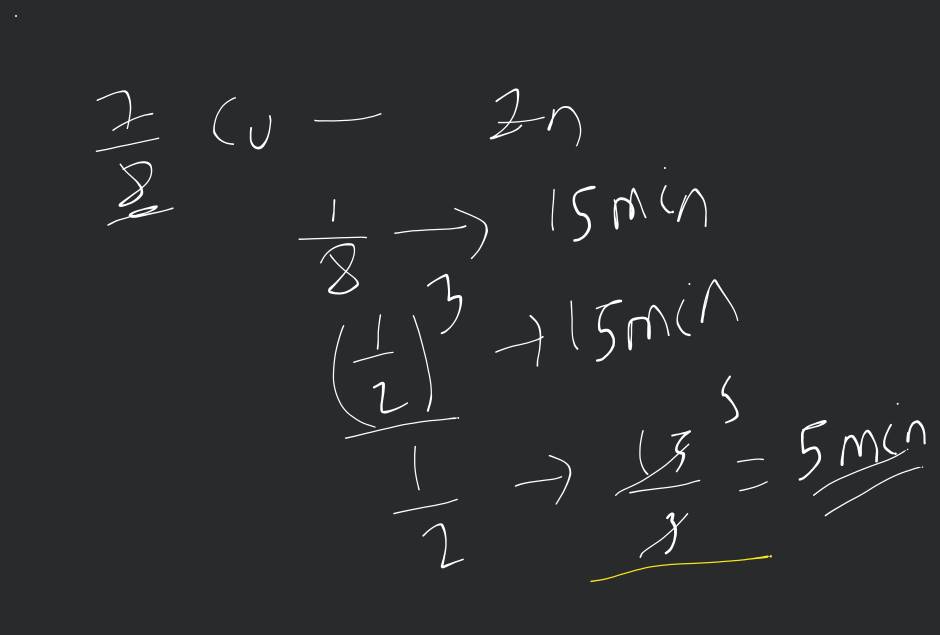 7/8 Cu — Zn
1/8 → 15 min
(1/2)^3 → 15 min
1/2 → 15/3 5 = 5 min